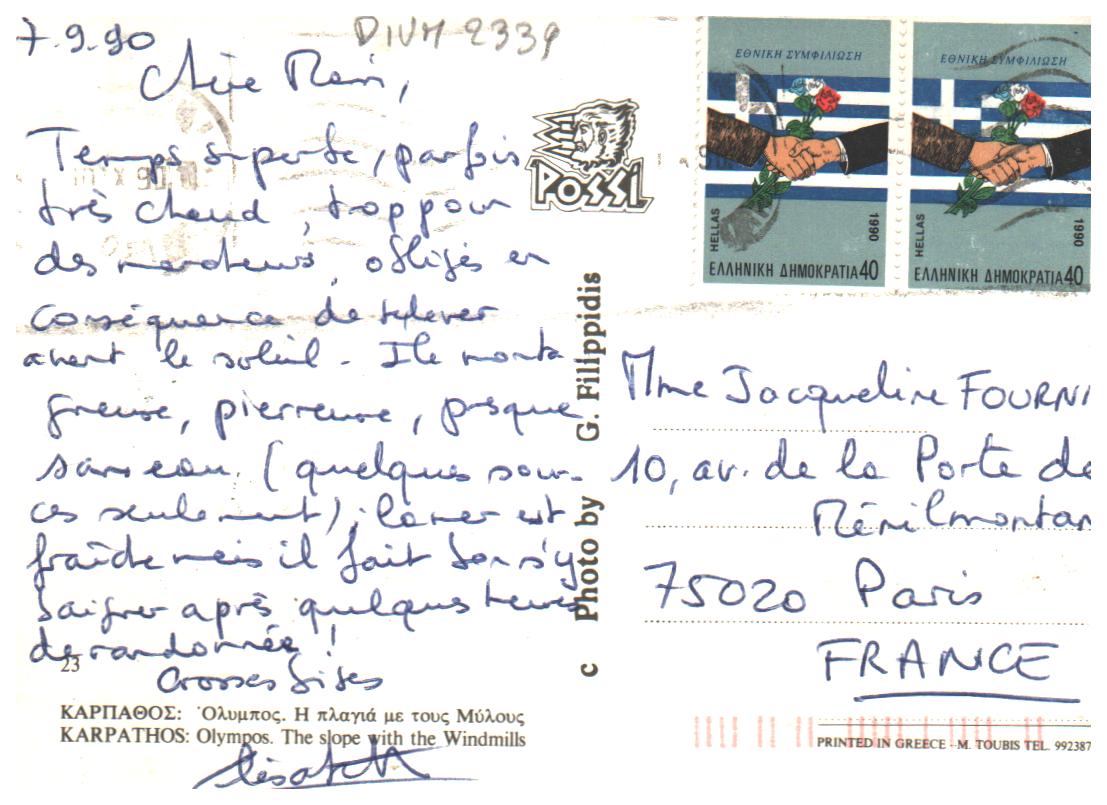 7.9.90
DIVM 2339
Chère Mami,
Temps superbe, parfois
très chaud, trop pour
des marcheurs, obligés en
conséquence de se lever
avant le soleil - Ile monta
gneuse, pierreuse, presque
sans eau (quelques sour-
ces seulement); la mer est
fraîche mais il fait bon s'y
baigner après quelques heures
de randonnée !
Grosses bises
23
ΚΑΡΠΑΘΟΣ: Όλυμπος. Η πλαγιά με τους Μύλους
KARPATHOS: Olympos. The slope with the Windmills
POSSI
c Photo by G. Filippidis
ΕΘΝΙΚΗ ΣΥΜΦΙΛΙΩΣΗ
HELLAS
1990
ΕΛΛΗΝΙΚΗ ΔΗΜΟΚΡΑΤΙΑ 40
ΕΘΝΙΚΗ ΣΥΜΦΙΛΙΩΣΗ
HELLAS
1990
ΕΛΛΗΝΙΚΗ ΔΗΜΟΚΡΑΤΙΑ 40
Mme Jacqueline FOURNI
10, av. de la Porte de
Ménilmontan
75020 Paris
FRANCE
PRINTED IN GREECE - M. TOUBIS TEL. 992387